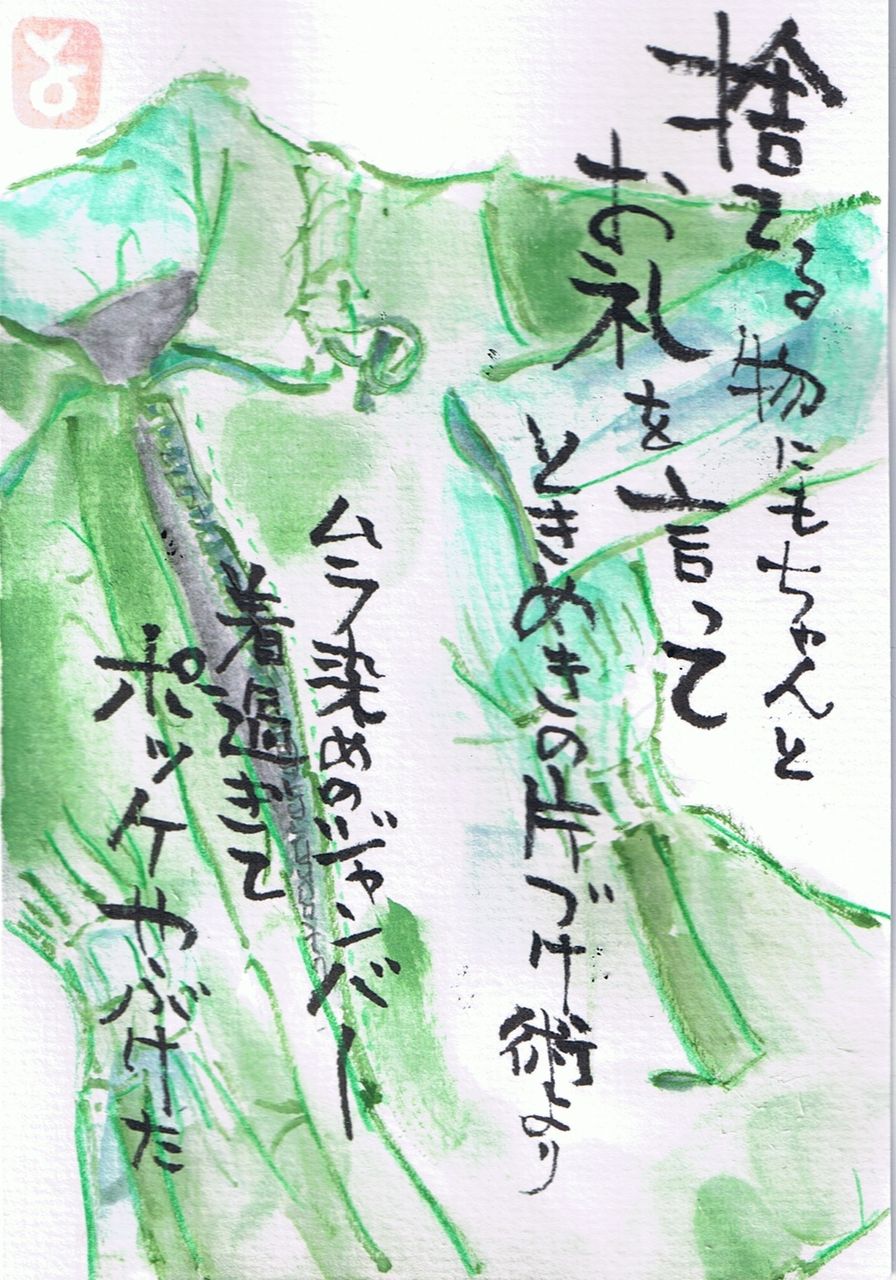 捨てる物にもちゃんと
お礼を言って
ときめきの片づけ術より
ムラ染めのジャンバー
着過ぎて
ポッケやぶけた
よ